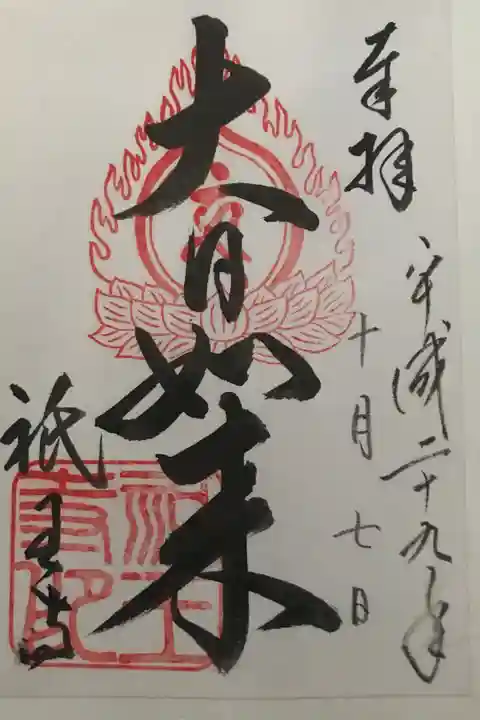 奉拝
平成二十九年
十月七日
大日如来
祇王寺
祇王寺印